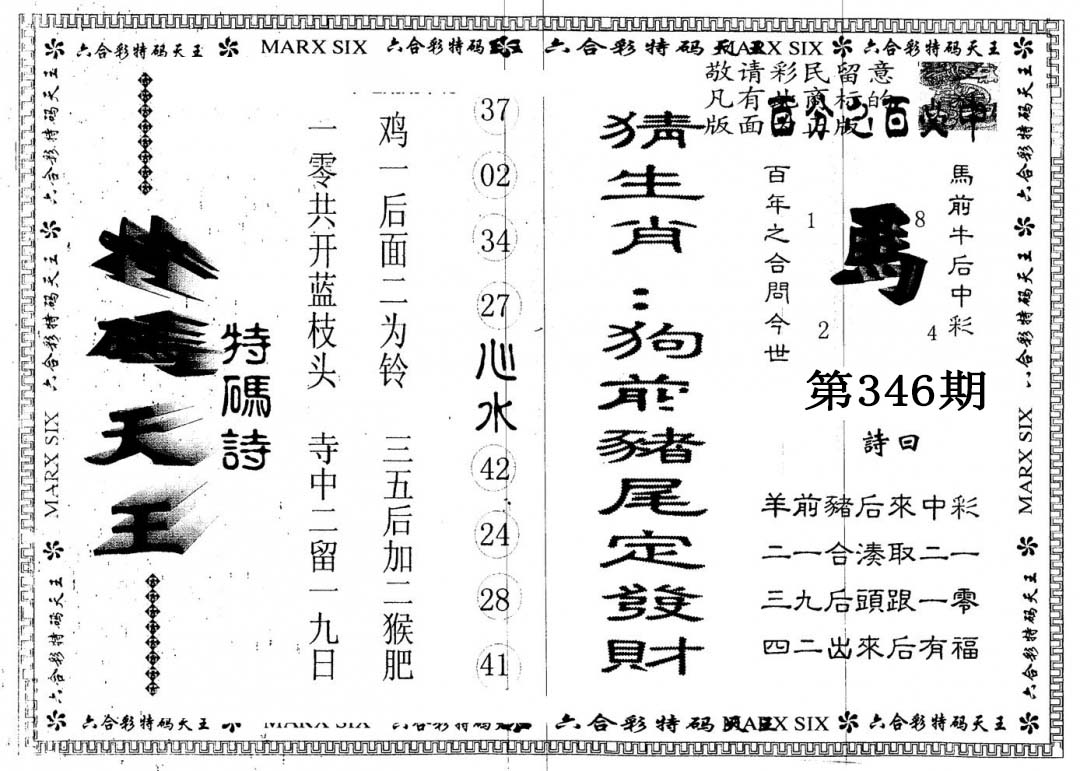 六合彩特码天王 MARX SIX 六合彩特码天王 六合彩特码天王 MARX SIX 六合彩特码天王
敬请彩民留意
凡有此商标的
版面为正版
百分之百
馬前牛后中彩
馬
1
8
2
4
百年之合問今世
第346期
詩曰
羊前豬后來中彩
二一合湊取二一
三九后頭跟一零
四二出來后有福
猜生肖：狗前豬尾定發財
37
02
34
27
心水
42
24
28
41
鸡一后面二为铃 三五后加二猴肥
一零共开蓝枝头 寺中二留一九日
特碼詩
天王
六合彩特码天王
六合彩特码天王
MARX SIX
六合彩特码天王
六合彩特码天王
六合彩特码天王
MARX SIX
六合彩特码天王
六合彩特码天王 MARX SIX 六合彩特码 六合彩特码天王 MARX SIX 六合彩特码天王